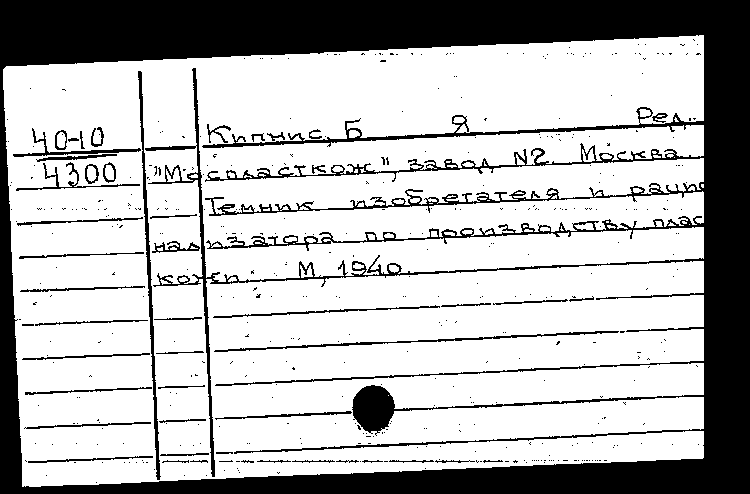 40-10 Кипнис, Б Я. Ред.
4300 "Моспласткож", завод №2. Москва.
Темник изобретателя и рацио
нализатора по производству плас
кожи. М, 1940.